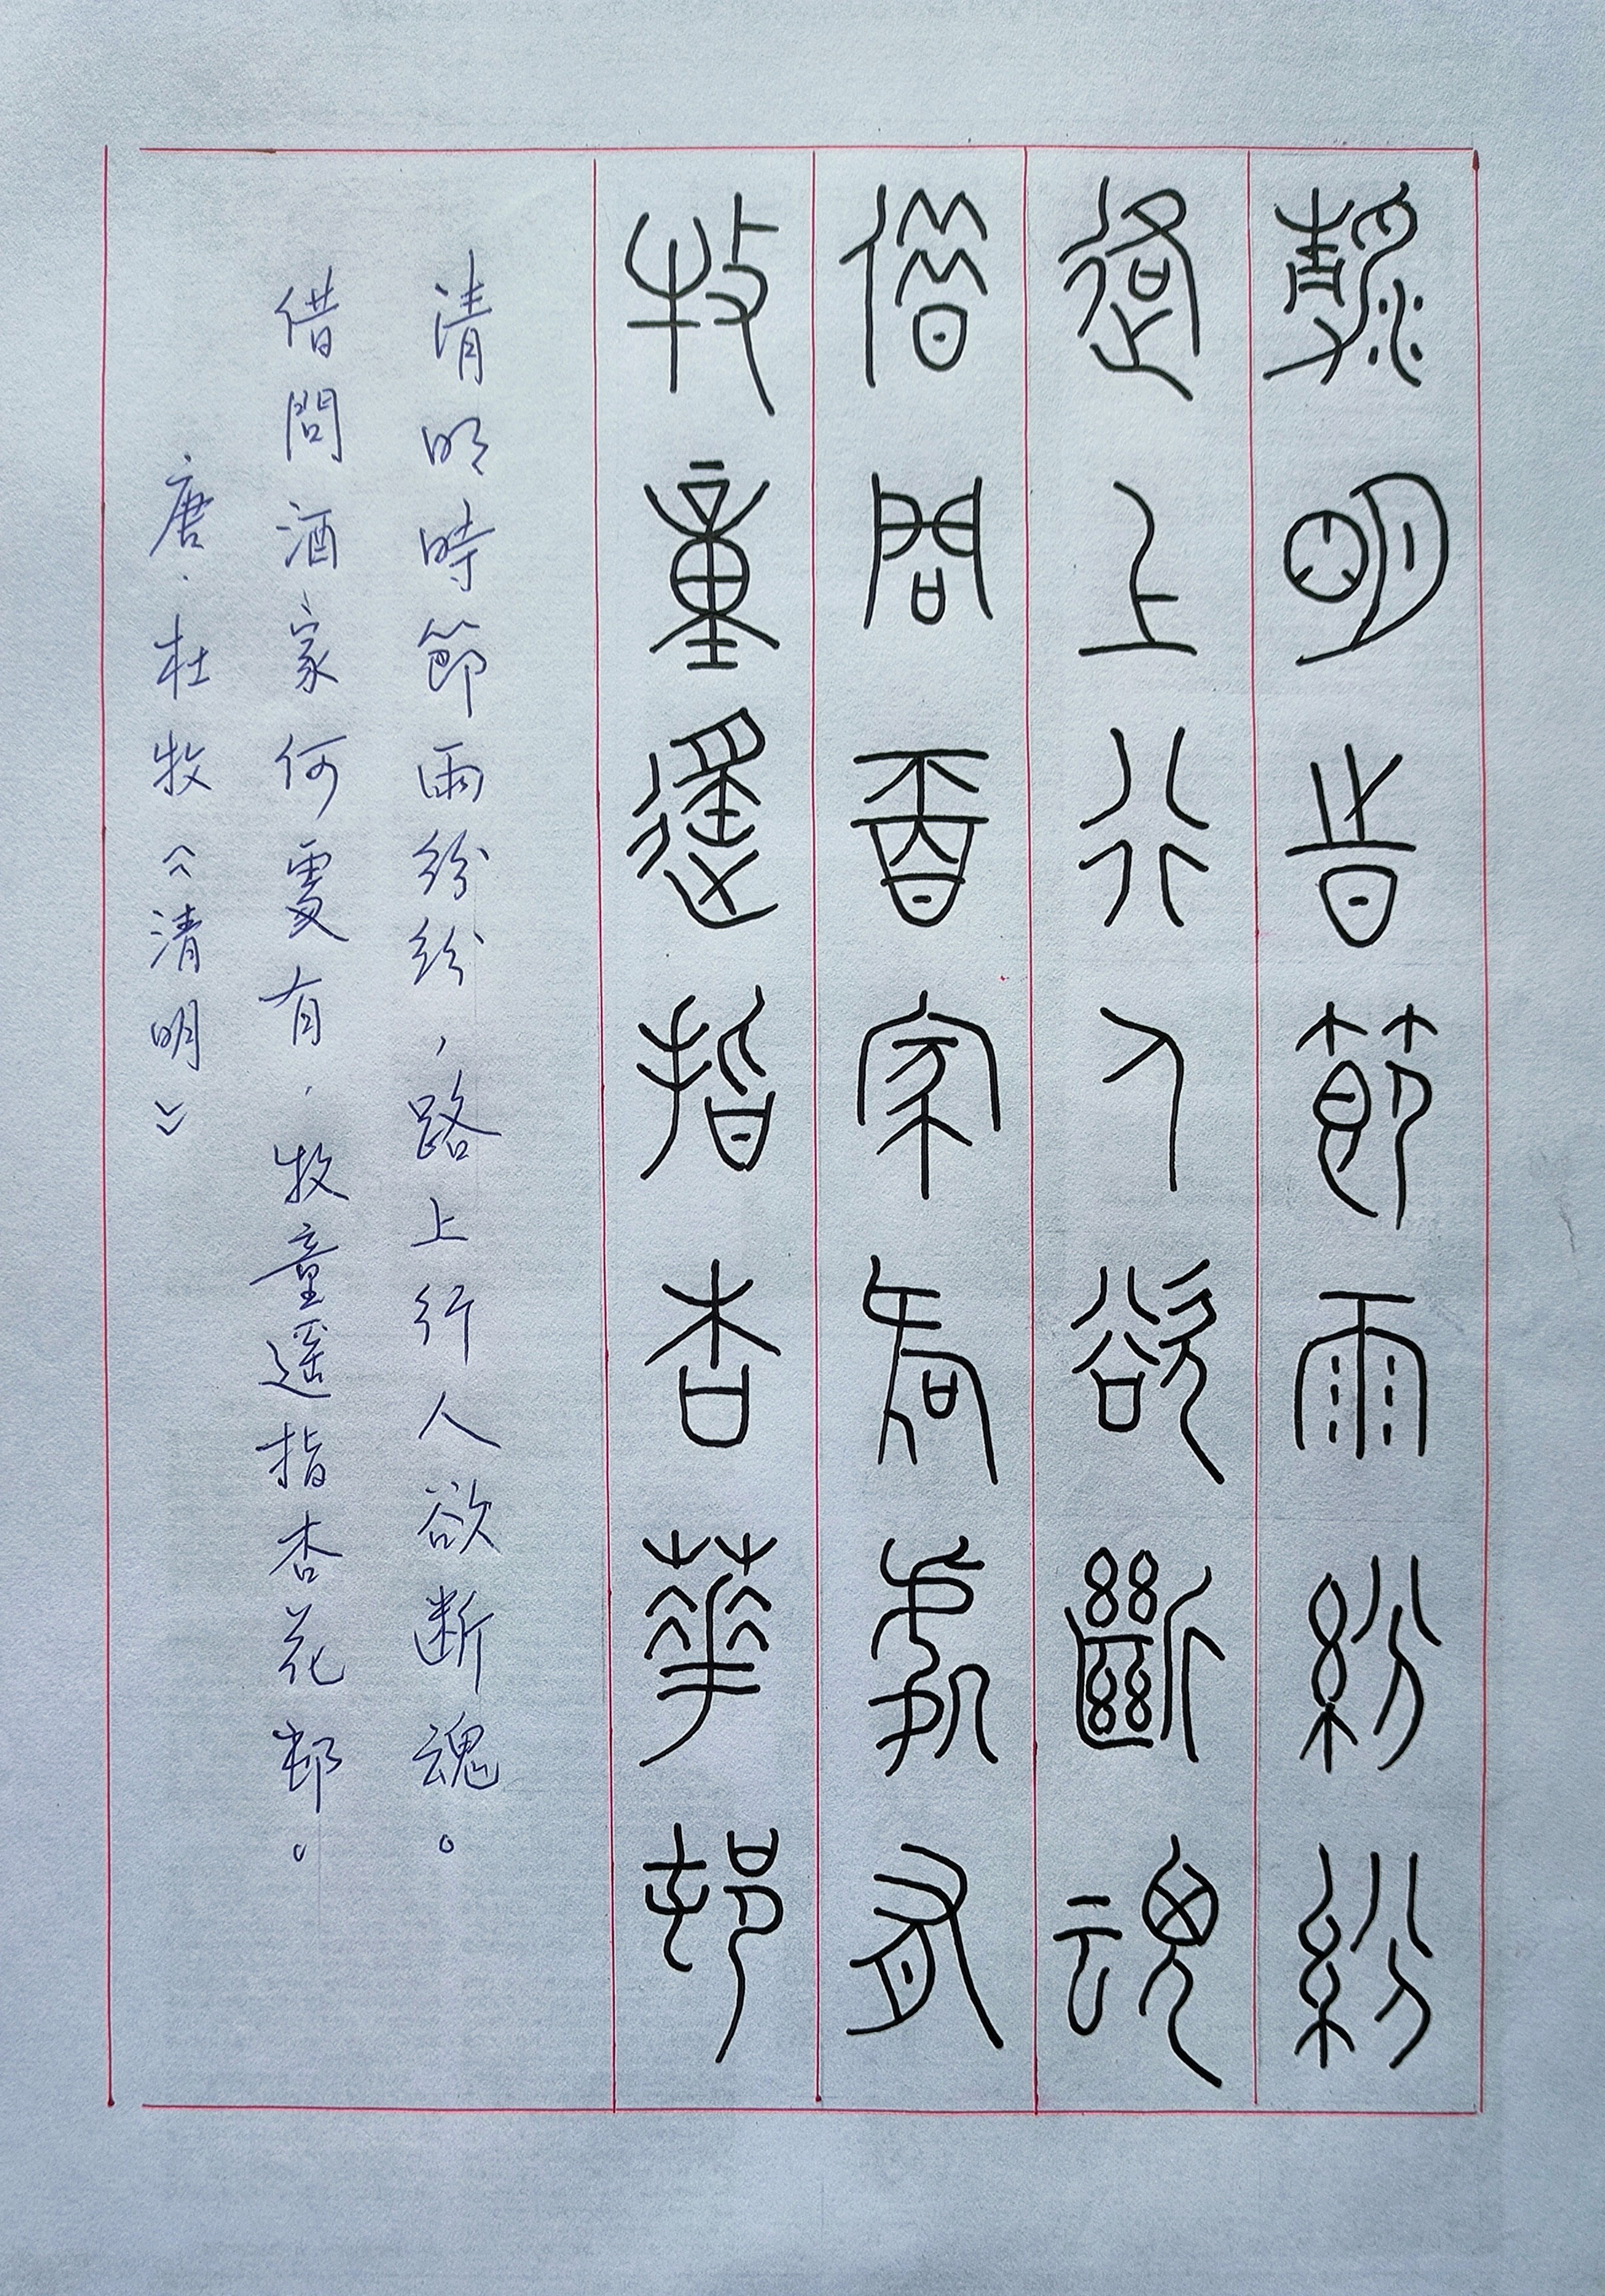 清明時節雨紛紛
路上行人欲斷魂
借問酒家何處有
牧童遙指杏華邨
清明時節雨紛紛，路上行人欲断魂。
借問酒家何處有．牧童遥指杏花邨。
唐·杜牧《清明》